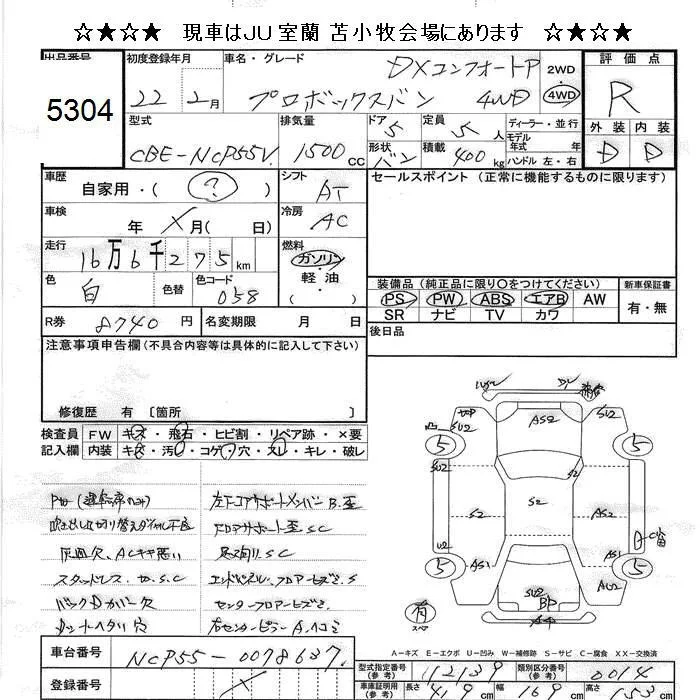 ☆★☆★ 現車はJU室蘭 苫小牧会場にあります ☆★☆★
出品番号 初度登録年月 車名・グレード DXコンフォートP 2WD 評価点
5304 22年 2月 プロボックスバン 4WD 4WD R
型式 排気量 ドア 5 定員 5人 ディーラー・並行 外装 内装
CBE-NCP55V 1500cc 形状 バン 積載 400kg モデル年式 年式 ハンドル 左・右 D D
車歴 自家用・( ? ) シフト AT セールスポイント (正常に機能するものに限ります)
車検 年 X 月 ( 日) 冷房 AC
走行 16万6千275km 燃料 ガソリン
色 白 色替 色コード 058 軽油 ( ) 装備品 (純正品に限り○をつけてください) 新車保証書
PS PW ABS エアB AW 有・無
R券 8740円 名変期限 月 日 SR ナビ TV カワ
注意事項申告欄(不具合内容等は具体的に記入して下さい) 後日品
修復歴 有 〔箇所 〕
検査員 FW キズ・飛石・ヒビ割・リペア跡・×要
記入欄 内装 キズ・汚・コゲ・穴・スレ・キレ・破レ
PW(運転席のみ) 左F.コアサポートメンバーB.歪
吹出し口切り替えダイヤル不良 F.コアサポート歪 S.C
灰皿欠、ACキキ悪い 足廻り S.C
スタッドレス
バックDカバー欠
シートヘタリ 穴 右センターピラーA.
凹 SU2 AS2 SU2
5 5
SU2 S2
S2 S2 AS2
U2 AS1 AS1
5 5
SU2 AU2
BP
有 スペア
A-キズ E-エクボ U-凹み W-補修跡 S-サビ C-腐食 XX-交換済
車台番号 NCP55-0078637 型式指定番号(参考) 12139 類別区分番号(参考) 0014
登録番号 車庫証明用(参考) 長さ 419cm 幅 169cm 高さ 153cm